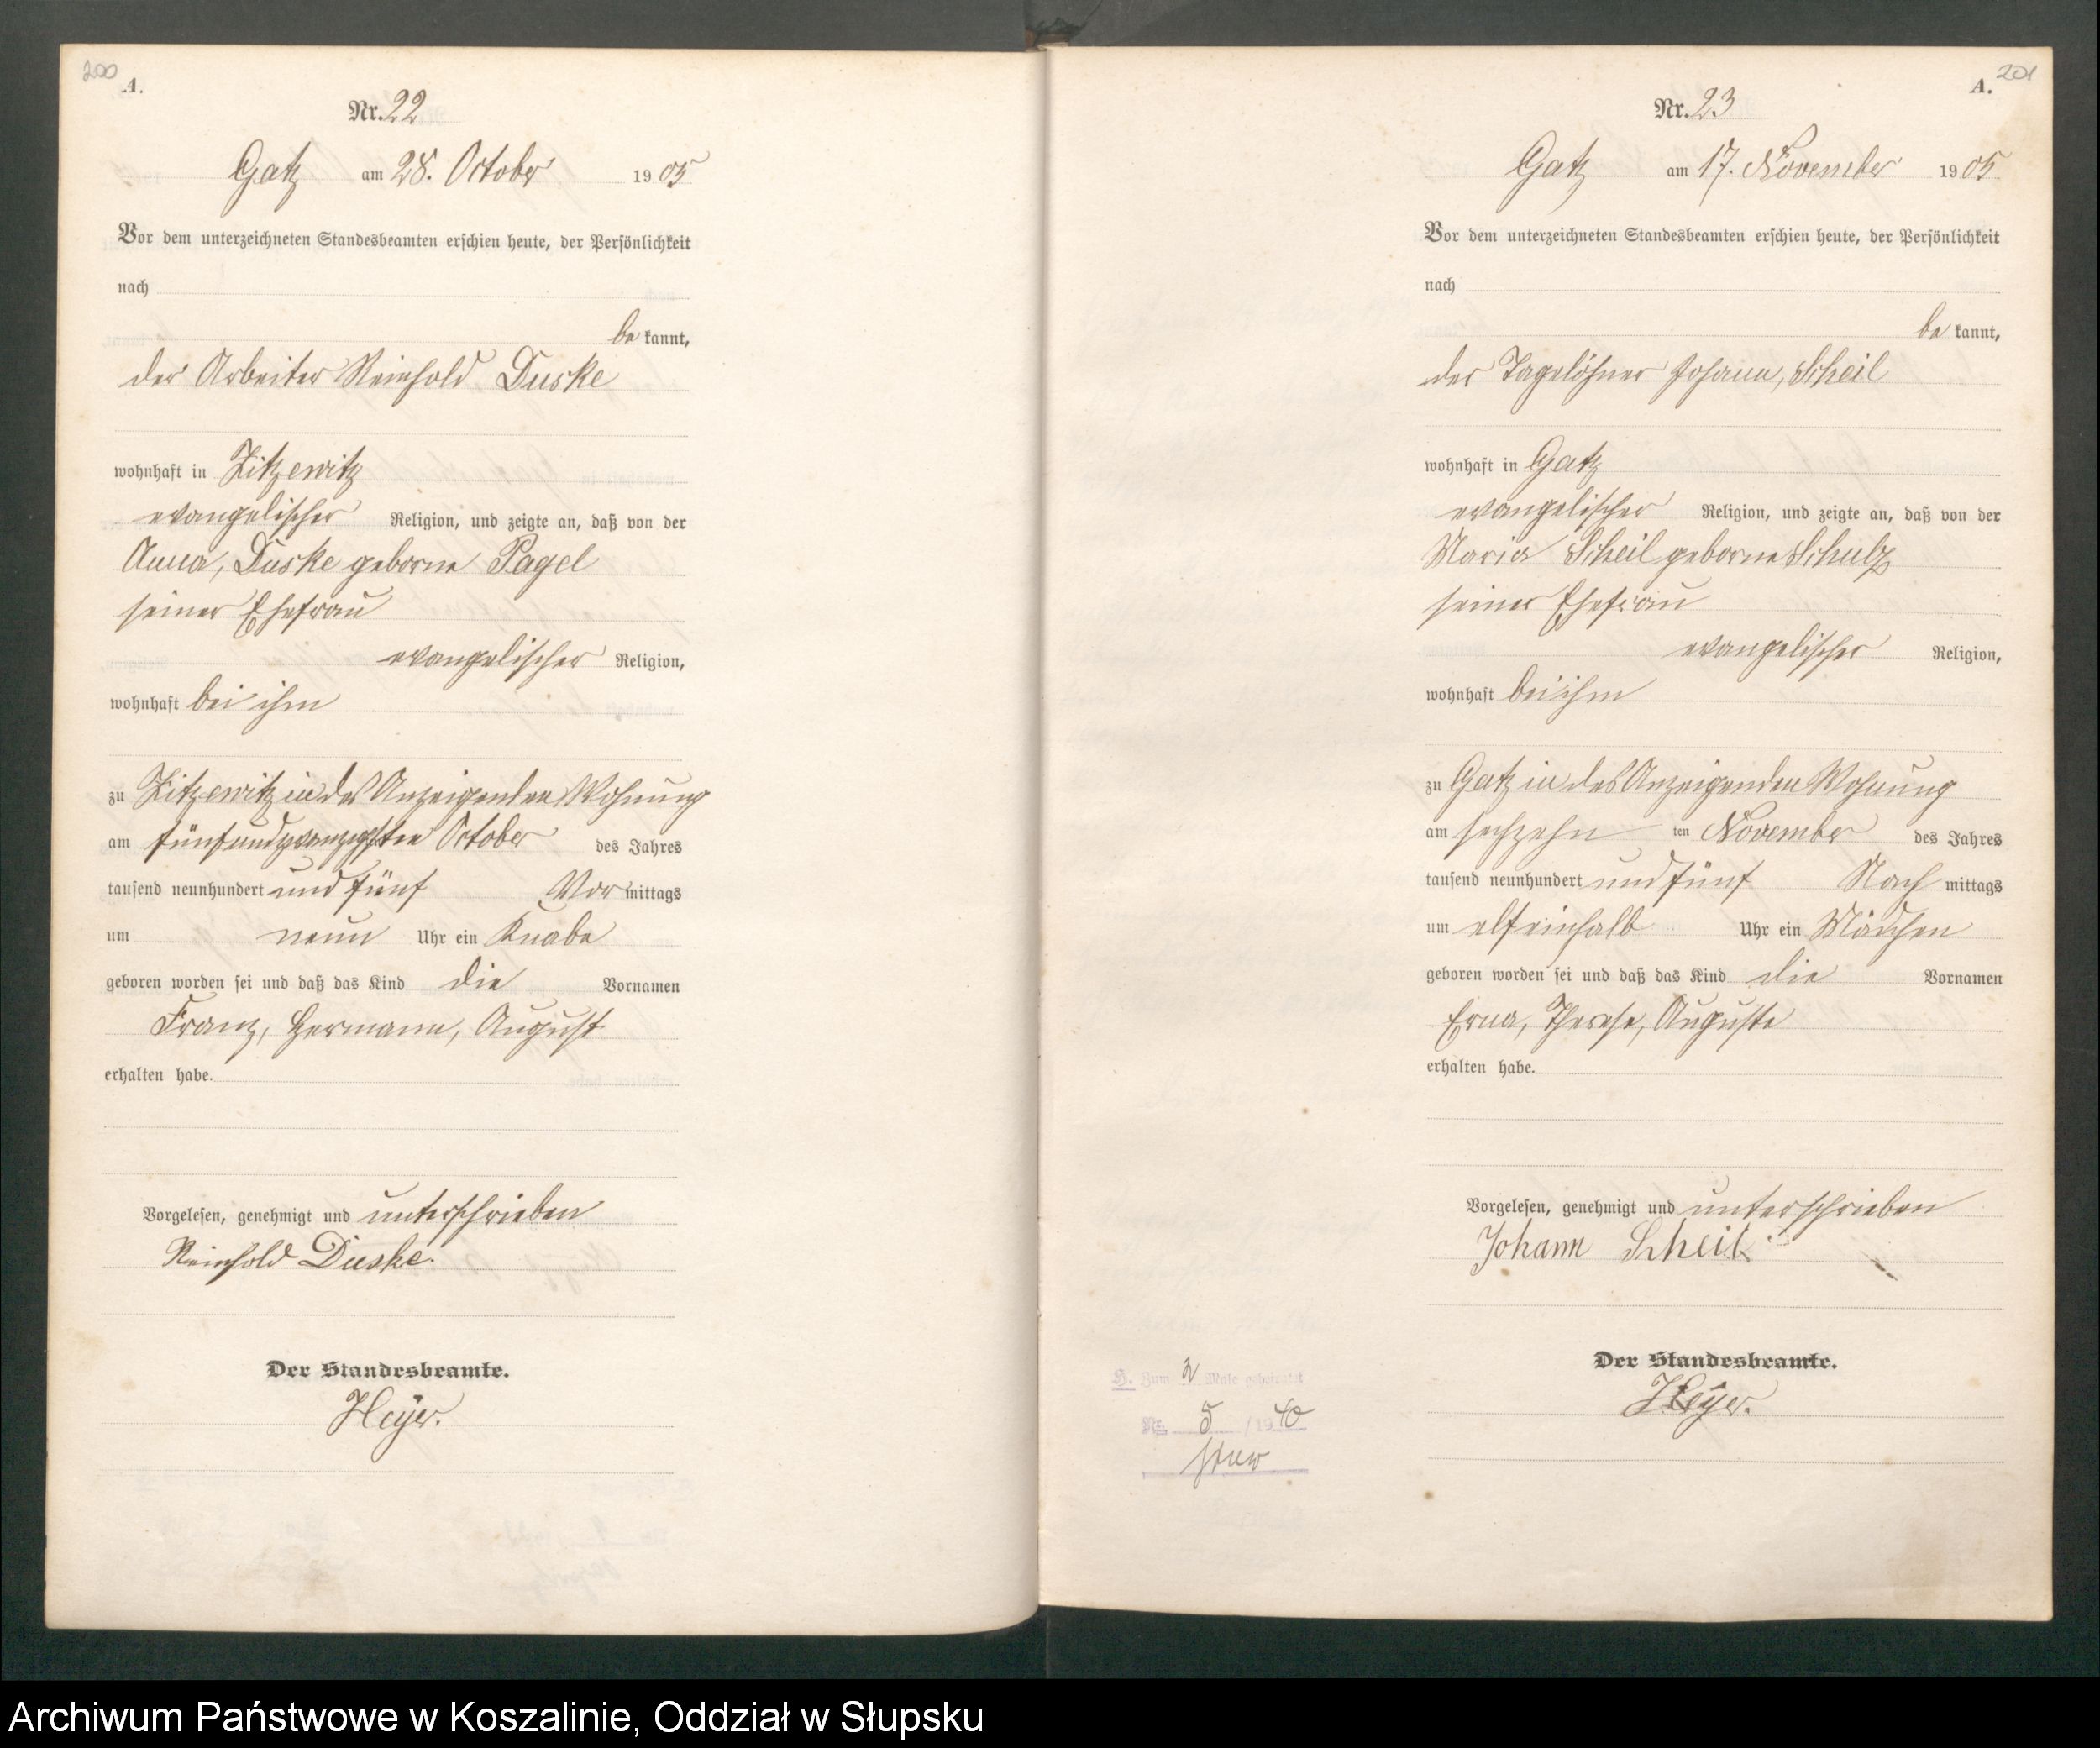 200
A.
Nr. 22
Gatz am 28. October 1905
Vor dem unterzeichneten Standesbeamten erschien heute, der Persönlichkeit
nach
be kannt,
der Arbeiter Reinhold Duske
wohnhaft in Zitzewitz
evangelischer Religion, und zeigte an, daß von der
Anna, Duske geborne Pagel
seiner Ehefrau
evangelischer Religion,
wohnhaft bei ihm
zu Zitzewitz in des Anzeigenden Wohnung
am fünfundzwanzigsten October des Jahres
tausend neunhundert und fünf Vor mittags
um neun Uhr ein Knabe
geboren worden sei und daß das Kind die Vornamen
Franz, Hermann, August
erhalten habe.
Vorgelesen, genehmigt und unterschrieben
Reinhold Duske.
Der Standesbeamte.
Heyer.
201
A.
Nr. 23
Gatz am 17. November 1905
Vor dem unterzeichneten Standesbeamten erschien heute, der Persönlichkeit
nach
be kannt,
der Tagelöhner Johann, Scheil
wohnhaft in Gatz
evangelischer Religion, und zeigte an, daß von der
Maria Scheil geborne Schulz
seiner Ehefrau
evangelischer Religion,
wohnhaft bei ihm
zu Gatz in des Anzeigenden Wohnung
am sechzehn ten November des Jahres
tausend neunhundert und fünf Nach mittags
um elfeinhalb Uhr ein Mädchen
geboren worden sei und daß das Kind die Vornamen
Erna, Therese, Auguste
erhalten habe.
Vorgelesen, genehmigt und unterschrieben
Johann Scheil
Der Standesbeamte.
Heyer.
H. Zum 2 Male geheiratet
Nr. 5 /1940
Archiwum Państwowe w Koszalinie, Oddział w Słupsku